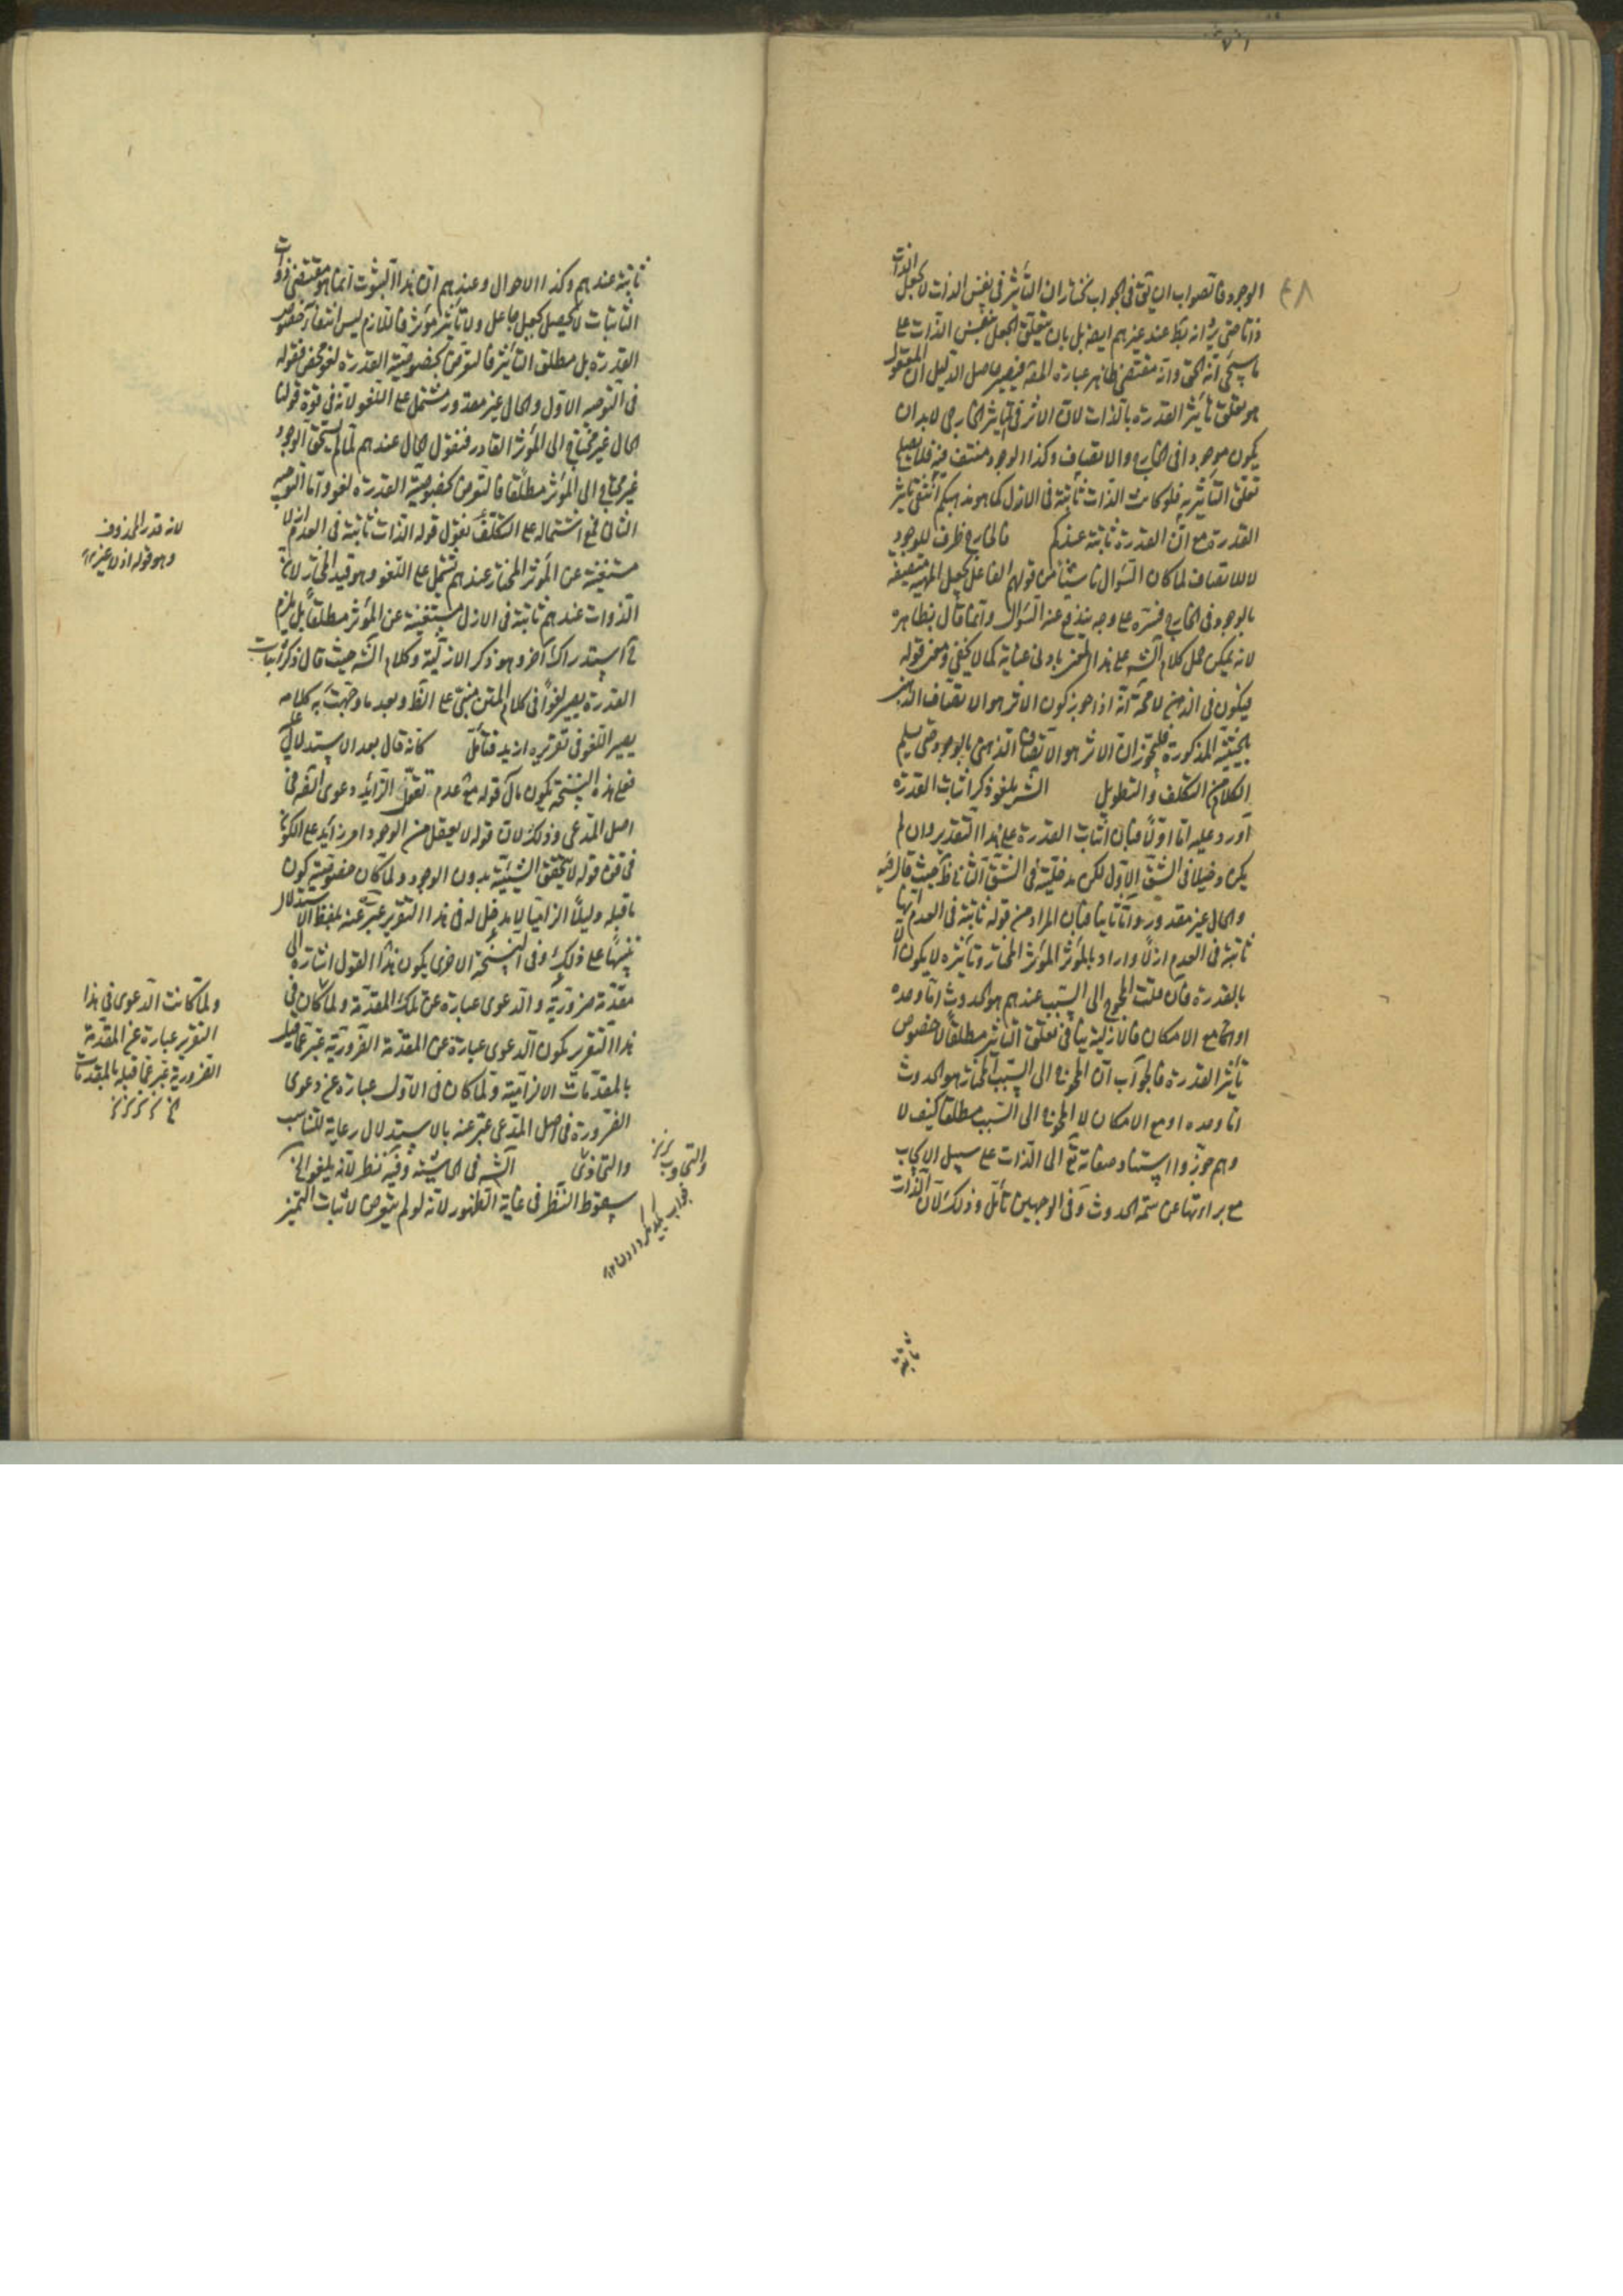 ٤٨
الوجود فالصواب ان يق فى الجواب نختار ان التأثير فى نفس الذات لا بجعل الذات
ذاتا حتى يرد انه بط عند غيرهم ايضا بل بان يتعلق الجعل بنفس الذات على
ما سيجئ انه الحق وانه مقتضى ظاهر عبارة المص فيصير حاصل الدليل ان المعقول
هو تعلق تأثير القدرة بالذات لان الاثر فى التأثير الخارجى لابد ان
يكون موجودا فى الخارج والاتصاف وكذا الوجود منتف فيه فلا يصلح
تعلق التأثير به فلو كانت الذات ثابتة فى الازل كما هو مذهبكم انتفى تأثير
القدرة مع ان القدرة ثابتة عندكم فالخارج ظرف للوجود
لا للاتصاف لما كان السؤال ناشئا من قولهم الفاعل يجعل المهية متصفة
بالوجود فى الخارج فسره على وجه يندفع عنه السؤال وانما قال بظاهره
لانه يمكن حمل كلام الشه على هذا المعنى بادنى عناية كما لا يخفى ومعنى قوله
فيكون فى الذهن لا محة انه اذا جوز كون الاثر هو الاتصاف الذهنى
بالحيثية المذكورة فليجوز ان الاثر هو الاتصاف الذهنى بالوجود حتى يسلم
الكلام من التكلف والتطويل الشه يلغو ذكر اثبات القدرة
اورد عليه اما اولا فبان اثبات القدرة على هذا التقدير وان لم
يكن دخيلا فى الشق الاول لكن مدخليته فى الشق الثانى ظ حيث قال فيه
والحال غير مقدور واما ثانيا فبان المراد من قوله ثابتة فى العدم انها
ثابتة فى العدم ازلا واراد بالمؤثر المؤثر المختار وتأثيره لا يكون الا
بالقدرة فان قلت المحوج الى السبب عندهم هو الحدوث اما وحده
او مع الامكان فالازلية ينافى تعلق التأثير مطلقا لا خصوص
تأثير القدرة فالجواب ان المحوج الى السبب المختار هو الحدوث
اما وحده او مع الامكان لا المحوج الى السبب مطلقا كيف لا
وهم جوزوا استناد صفاته تع الى الذات على سبيل الايجاب
مع براءتها عن سمة الحدوث وفى الوجهين تأمل وذلك لان الذات
ثابتة
ثابتة عندهم وكذا الاحوال وعندهم ان هذا الثبوت انما هو مقتضى ذوات
الثابتات لا يحصل بجعل جاعل ولا تأثير مؤثر فاللازم ليس انتفاء خصوص
القدرة بل مطلق التأثير فالتعرض بخصوصية القدرة لغو محض فقوله
فى التوجيه الاول والحال غير مقدور مشتمل على اللغو لانه فى قوة قولنا
الحال غير محتاج الى المؤثر القادر فنقول الحال عندهم لما لم يستحق الوجود
غير محتاج الى المؤثر مطلقا فالتعرض بخصوصية القدرة لغو واما التوجيه
الثانى فمع اشتماله على التكلف نقول قوله الذات ثابتة فى العدم ازلا
مستغنية عن المؤثر المختار عندهم مشتمل على اللغو وهو قيد المختار لان
الذوات عندهم ثابتة فى الازل مستغنية عن المؤثر مطلقا بل يلزم
ح استدراك آخر وهو ذكر الازلية وكلام الشه حيث قال ذكر اثبات
القدرة يصير لغوا فى كلام المتن مبنى على الظ وبعد ما وجهت به كلامه
يصير اللغو فى تقريره ازيد فتأمل كانه قال بعد الاستدلال
فعلى هذه النسخة يكون مآل قوله مع عدم تعقل الزائد دعوى الضرورة فى
اصل المدعى وذلك لان قوله لا يعقل من الوجود امر زائد على الكون
فى قوة قوله لا يتحقق الشيئية بدون الوجود ولما كان خصوصية كون
ما قبله دليلا الزاميا لا مدخل له فى هذا التقرير عبر عنه بلفظ الاستدلال
تنبيها على ذلك وفى النسخة الاخرى يكون هذا القول اشارة الى
مقدمة ضرورية والدعوى عبارة عن تلك المقدمة ولما كان فى
هذا التقرير يكون الدعوى عبارة عن المقدمة الضرورية عبر عما قبله
بالمقدمات الالزامية ولما كان فى الاول عبارة عن دعوى
الضرورة فى اصل المدعى عبر عنه بالاستدلال رعاية للتناسب
والتحاذى الشه فى الحاشية وفيه نظر لانه يلغو الخ
سقوط النظر فى غاية الظهور لانه لو لم يتعرض لاثبات التميز
لانه قدر المحذوف
وهو قوله ازلا غيره
ولما كانت الدعوى فى هذا
التقرير عبارة عن المقدمة
الضرورية عبر عما قبله بالمقدمات
والتجاوب
جواب يكديكر دادن